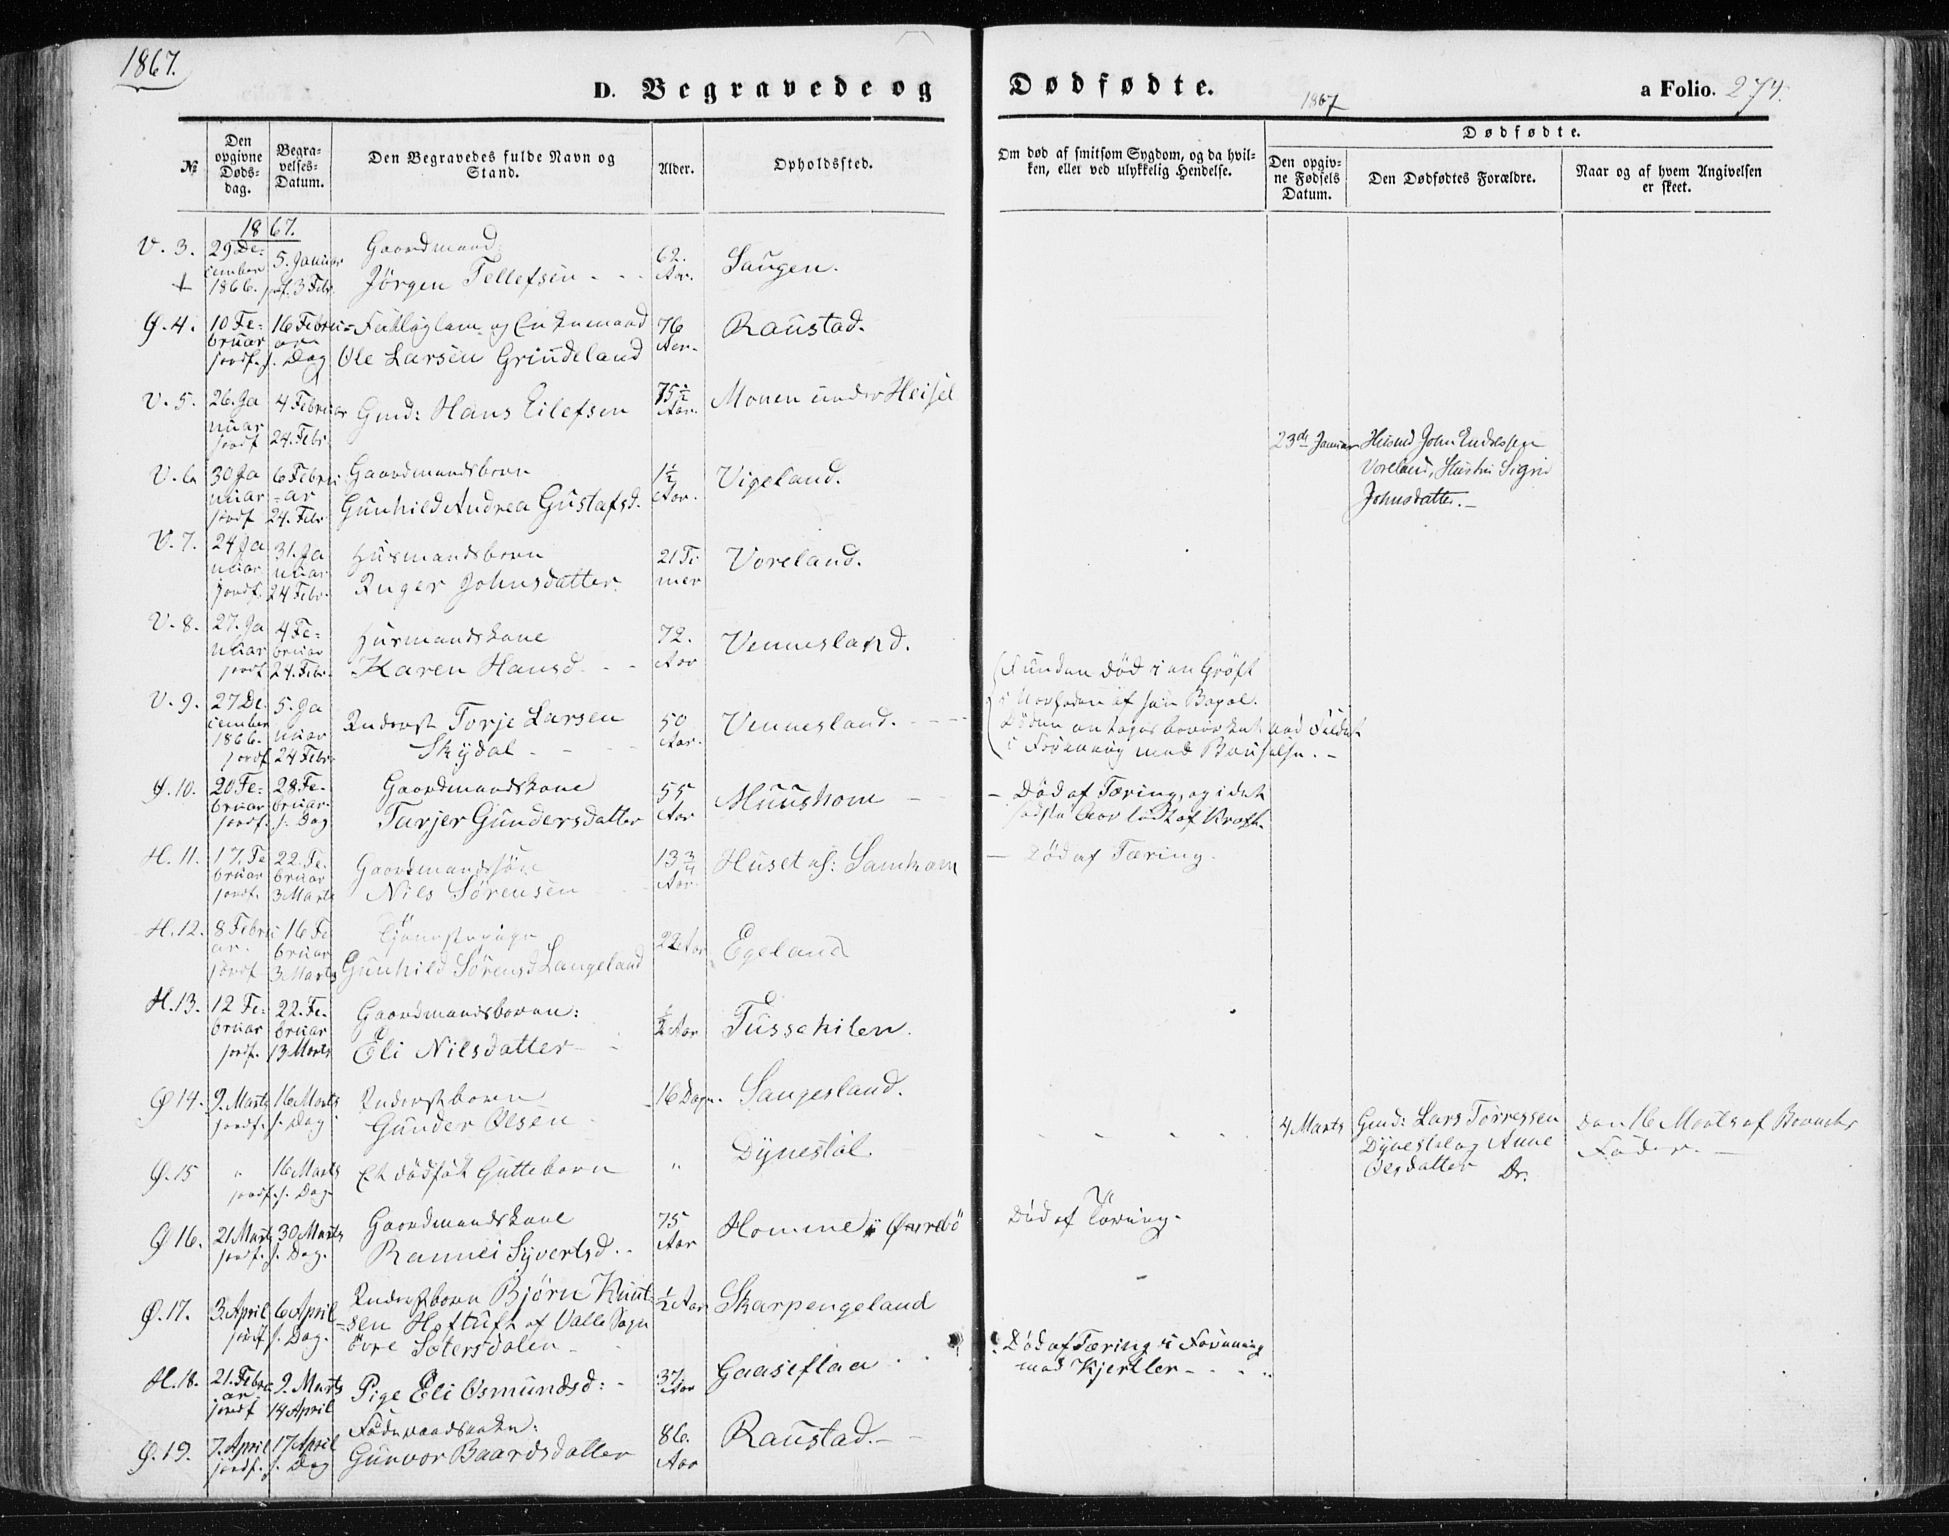 1867.
D. Begravede og Dødfødte.
1867
a Folio. 274.
№
Den opgivne Dødsdag.
Begravelses-Datum.
Den Begravedes fulde Navn og Stand.
Alder.
Opholdssted.
Om død af smitsom Sygdom, og da hvilken, eller ved ulykkelig Hendelse.
Dødfødte.
Den opgivne Fødsels Datum.
Den Dødfødtes Forældre.
Naar og af hvem Angivelsen er skeet.
1867.
V. 3. 29 December 1866. 5. Januar jordf. 3 Febr. Gaardmand Jörgen Tellefsen 62. Aar. Saugen.
Ø. 4. 10 Februar 16 Februar jordf. s. Dag Ole Larsen Grindeland 76 Aar. Raustad.
V. 5. 26. Januar 4 Februar jordf 24. Febr. Gmd: Hans Eilefsen 75½ Aar. Monen under Heisel
23de Januar Husmd John Endressen
Voreland, Hustru Sigrid
Johnsdatter.
V. 6. 30 Januar 6 Februar jordf 24. Febr. Gaardmandsbarn Gunhild Andrea Gustafsd. 1½ Aar. Vigeland.
V. 7. 24 Januar 31. Januar jordf. 24 Febr. Husmandsbarn Inger Johnsdatter. 21 Timer Voreland.
V. 8. 27. Januar 4 Februar jordf 24. Febr. Husmandskone Karen Hansd. 72. Aar Vennesland.
V. 9. 27 December 1866. 5. Januar jordf 24 Febr. Inderst Torje Larsen Skydal 50 Aar. Vennesland.
Funden död i en Gröft
i Nærheden af sin Bopæl.
Döden antages bevirket ved Fuldskab
i Forening med
Ø. 10. 20 Februar 28 Februar jordf. s. Dag Gaardmandskone Tarjer Gundersdatter 55 Aar Muushom
Död af Tæring, og i det
sidste Aar lidt af Kræft.
H. 11. 17. Februar 22. Februar jordf. 3 Marts Gaardmandssön Nils Sörensen 13¾ Aar. Huset uf: Samkom
Död af Tæring.
H. 12. 8 Februar 16 Februar jordf 3 Marts Tjenestepige Gunhild Sörensd. Langeland 22 Aar Egeland
H. 13. 12 Februar 22. Februar jordf. 13 Marts Gaardmandsbarn: Eli Nilsdatter ½ Aar Tussekilen.
Ø 14. 9. Marts 16 Marts jordf. s. Dag Inderstbarn Gunder Olsen 16 Dage. Sangesland.
Ø. 15 " 16 Marts jordf. s. Dag. Et dödfödt Guttebarn " Dynestöl.
4 Marts Gmd: Lars Torressen
Dynestöl og Anne
Olsdatter Do.
Den 16 Marts af Barnets
Fader.
Ø 16. 21 Marts 30 Marts jordf. s. Dag. Gaardmandskone Rannei Syvertsd. 75 Aar Homme i Övrebö
Död af Tæring.
Ø. 17. 3. April 6 April jordf s. Dag. Inderstbarn Björn Knutsen Hoftuft af Valle Sogn övre Sætersdalen ½ Aar Skarpengeland
H. 18. 21. Februar 9. Marts jordf 14 April Pige Eli Osmundsd: 37 Aar Gaaseflaa
Död af Tæring i Forening
med Kjertler
Ø. 19. 7. April 17 April jordf. s. Dag Föderaadsenke: Gunvor Baardsdatter 86. Aar Raustad.